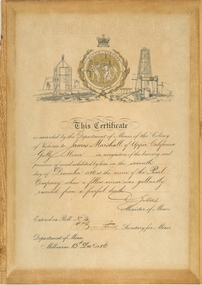 This Certificate
is awarded by the Department of Mines of the Colony
of Victoria to James Marshall of Upper California
Gully, Miner in recognition of the bravery and
exhibited before in the seventh
of December 1886 at the mine of the
Company when a fellow miner was gallantly
rescued from a fearful death
Minister of Mines
Entered on Roll No.
Secretary for Mines
Department of Mines
Melbourne 15 Dec 1886